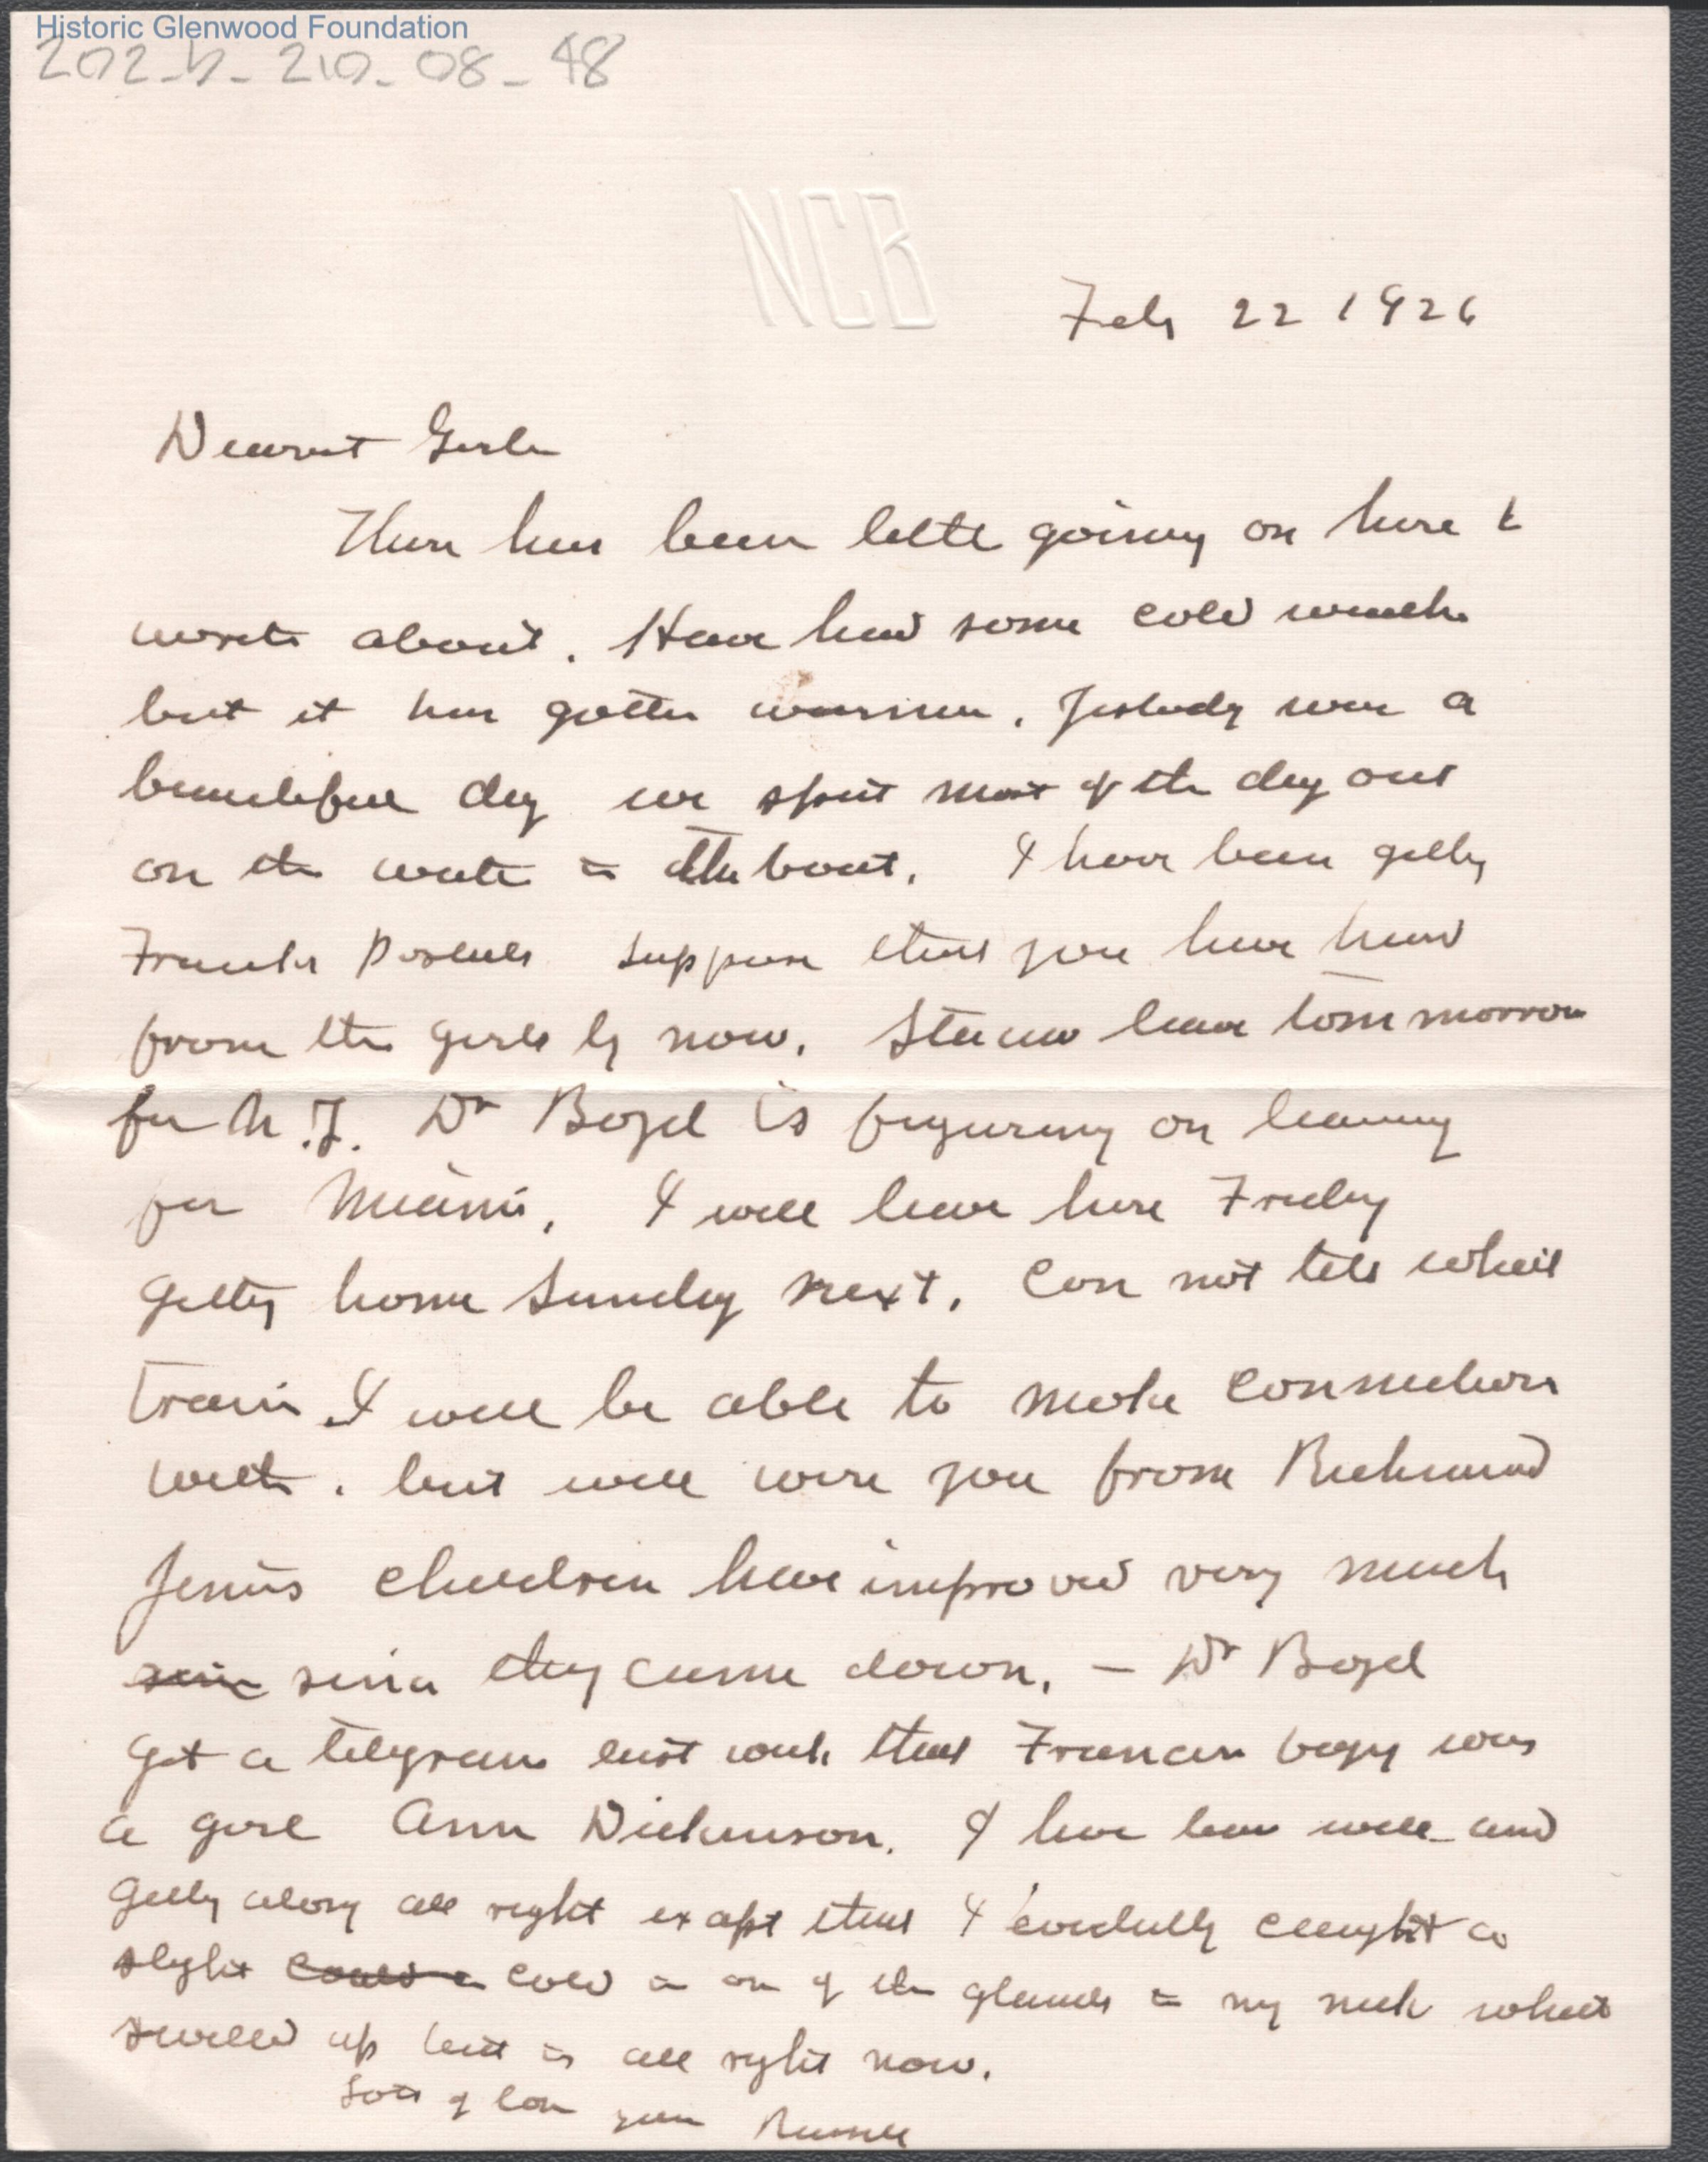 Historic Glenwood Foundation
202-b-210-08-48
NCB
Feb 22 1926
Dearest Girlie
There has been little going on here to
write about. Have had some cold weather
but it has gotten warmer. Yesterday was a
beautiful day we spent most of the day out
on the water in the boat. I have been getting
Franks Postals suppose that you have heard
from the girls by now. leave tommorrow
for N.J. Dr Boyd is figuring on leaving
for Miami. I will leave here Friday
getting home Sunday next. Can not tell what
train I will be able to make connections
with. but will wire you from Richmond
Jennis children have improved very much
since they came down. – Dr Boyd
got a telegram last week that Frances baby was
a girl Ann Dickinson. I have been well and
getting along all right except that I evidently caught a
slight cold in one of the glands in my neck which
swelled up but is all right now.
Lots of love your Russell